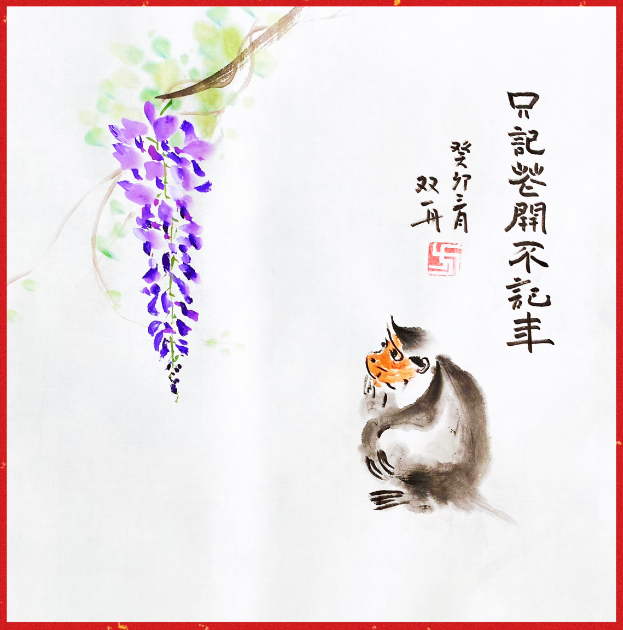 只記花開不記年
癸卯三月
双